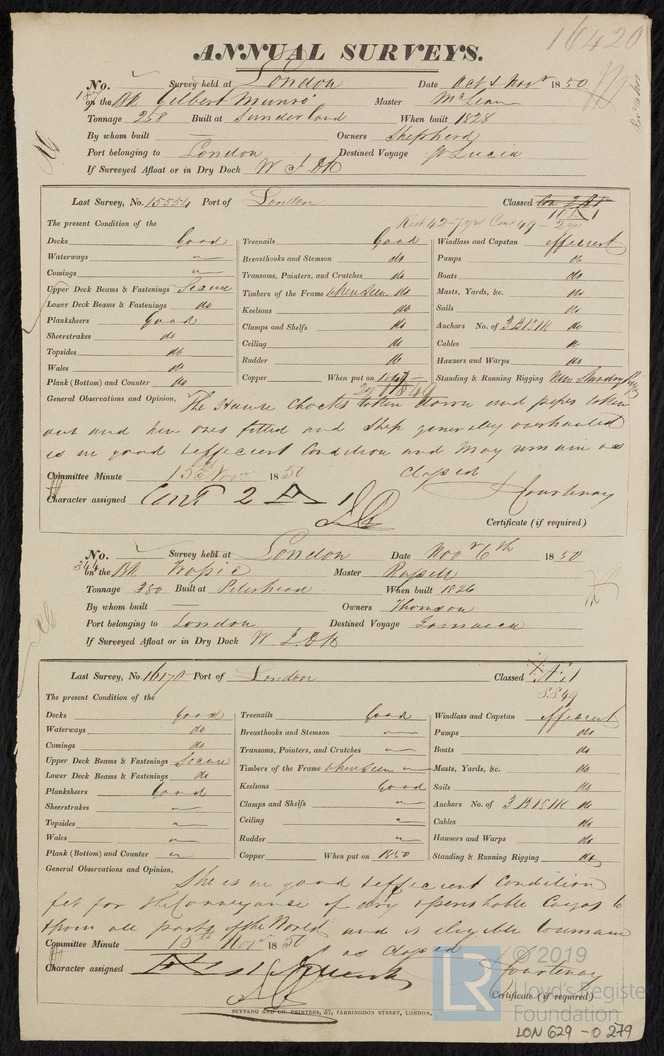 16420
ANNUAL SURVEYS.
No. Survey held at London Date Oct & Novr 1850
on the Bk Gilbert Munro Master McLean
Tonnage 258 Built at Sunderland When built 1828
By whom built — Owners Shepherd
Port belonging to London Destined Voyage St Lucia
If Surveyed Afloat or in Dry Dock W I Dk
Last Survey, No. 15554 Port of London Classed
The present Condition of the
Decks Good Treenails Good Windlass and Capstan efficient
Waterways Breasthooks and Stemson do Pumps do
Comings Transoms, Pointers, and Crutches do Boats do
Upper Deck Beams & Fastenings Secure Timbers of the Frame when seen do Masts, Yards, &c. do
Lower Deck Beams & Fastenings do Keelsons do Sails do
Planksheers Good Clamps and Shelfs do Anchors No. of 3 B 1 S 1 K do
Sheerstrakes do Ceiling do Cables do
Topsides do Rudder do Hawsers and Warps do
Wales do Copper When put on 1847 Standing & Running Rigging New Standing
Plank (Bottom) and Counter do
General Observations and Opinion, The Hawse Chocks taken down and pipes taken
out and new ones fitted and Ship generally overhauled
is in good & efficient Condition and may remain as
Classed
Committee Minute 15th Novr 1850
Character assigned Cont 2 A 1 Courtenay
Certificate (if required)
No. Survey held at London Date Novr 6th 1850
344 on the Bk Master Russell
Tonnage 350 Built at Peterhead When built 1826
By whom built — Owners Thomson
Port belonging to London Destined Voyage Jamaica
If Surveyed Afloat or in Dry Dock W I Dk
Last Survey, No. 16170 Port of London Classed Æ 1
The present Condition of the SS 49
Decks Good Treenails Good Windlass and Capstan efficient
Waterways do Breasthooks and Stemson Pumps do
Comings do Transoms, Pointers, and Crutches Boats do
Upper Deck Beams & Fastenings Secure Timbers of the Frame when seen Masts, Yards, &c. do
Lower Deck Beams & Fastenings do Keelsons Good Sails do
Planksheers Good Clamps and Shelfs Anchors No. of 3 B 1 S 1 K do
Sheerstrakes Ceiling Cables do
Topsides Rudder Hawsers and Warps do
Wales Copper When put on 1850 Standing & Running Rigging do
Plank (Bottom) and Counter
General Observations and Opinion, She is in good & efficient Condition
fit for the Conveyance of dry & perishable Cargos to
& from all parts of the World and is eligible to remain
as Classed
Committee Minute 15th Novr 1850
Character assigned Æ 1 Courtenay
Certificate (if required)
SEYFANG AND CO. PRINTERS, 57, FARRINGDON STREET, LONDON.
LR © 2019
Lloyd's Register
Foundation
LON 629 - 0279